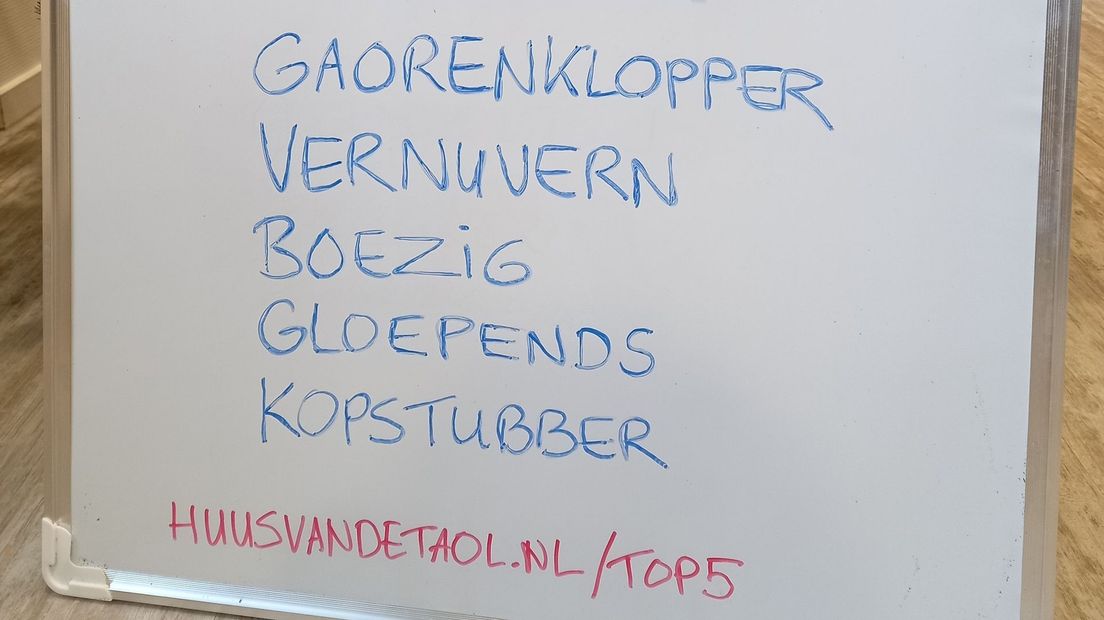 GAORENKLOPPER
VERNUVERN
BOEZiG
GLOEPENDS
KOPSTUBBER
HUUSVANDETAOL.NL/TOP5